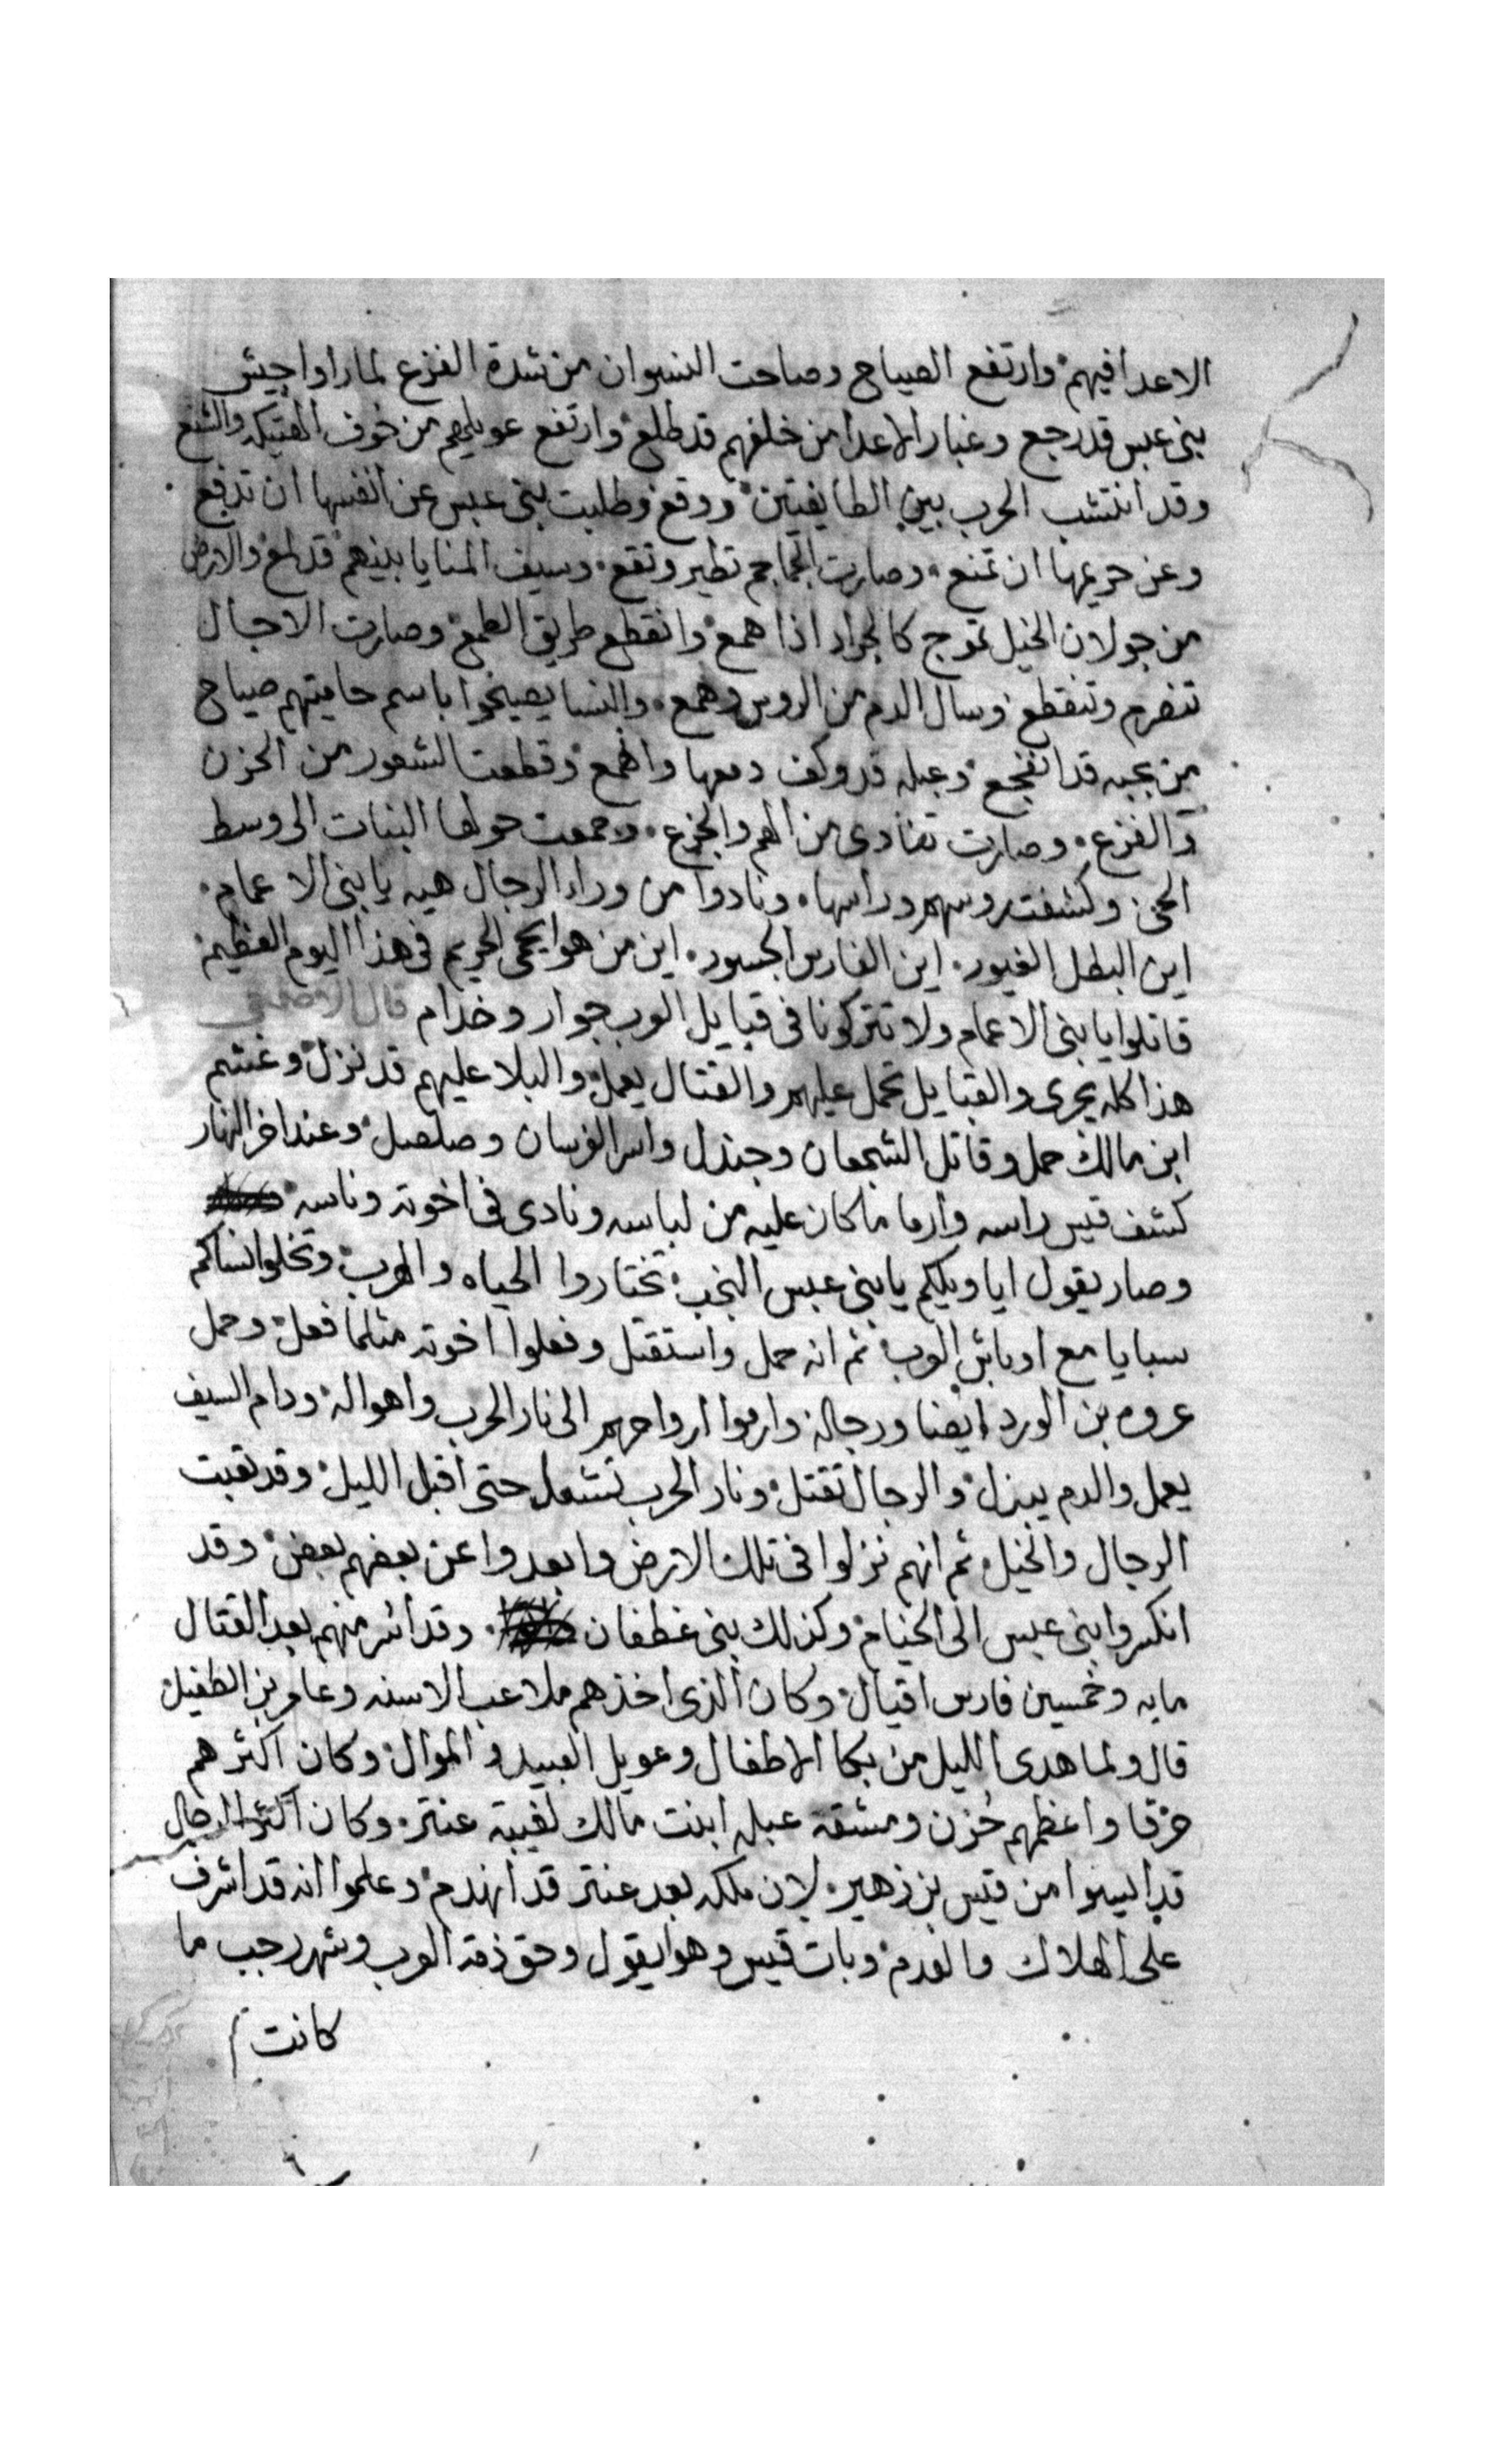 الاعدا فيهم وارتفع الصياح وصاحت النسوان من شدة الفزع لما راوا جيش
بنى عبس قد رجع وغبار الاعدا من خلفهم قد طلع وارتفع عويلهم من خوف الهتيكه والشنع
وقد انتشب الحرب بين الطايفتين ووقع وطلبت بنى عبس عن انفسها ان تدفع
وعن حريمها ان تمنع وصارت الجماجم تطير وتقع وسيف المنايا بينهم قد لمع والارض
من جولان الخيل تموج كالجراد اذا همع وانقطع طريق الطمع وصارت الاجال
تنصرم وتنقطع وسال الدم من الروس وهمع والنسا يصيحوا باسم حاميتهم صياح
من بحبه قد انفجع وعبله قد وكف دمعها وانهمع وقطعت الشعور من الحزن
والفزع وصارت تنادى من الهم والجزع وجمعت حولها البنات الى وسط
الحى وكشفت روسهم وراسها ونادوا من وراء الرجال هيه يا بنى الاعمام
اين البطل الغيور اين الفارس الجسور اين من هوا يحمى الحريم فى هذا اليوم العظيم
قاتلوا يا بنى الاعمام ولا تتركونا فى قبايل العرب جوار وخدام قال الاصمعى
هذا كله يجرى والقبايل تحمل عليهم والقتال يعمل والبلا عليهم قد نزل وغشم
ابن مالك حمل وقاتل الشجعان وجندل واسر الفرسان وصلصل وعند اخر النهار
كشف قيس راسه وارما ما كان عليه من لباسه ونادى فى اخوته وناسه
وصار يقول ايا ويلكم يا بنى عبس النخب تختاروا الحياه والهرب وتخلوا نساكم
سبايا مع اوباش العرب ثم انه حمل واستقتل وفعلوا اخوته مثلما فعل وحمل
عروه بن الورد ايضا ورجاله وارموا ارواحهم الى نار الحرب واهواله ودام السيف
يعمل والدم يبزل والرجال تقتل ونار الحرب تشعل حتى اقبل الليل وقد تعبت
الرجال والخيل ثم انهم نزلوا فى تلك الارض وابعدوا عن بعضهم بعض وقد
انكسروا بنى عبس الى الخيام وكذلك بنى غطفان وقد اسر منهم بعد القتال
مايه وخمسين فارس اقيال وكان الذى اخذهم ملاعب الاسنه وعامر بن الطفيل
قال ولما هدى الليل من بكا الاطفال وعويل العبيد والموال وكان اكثرهم
حرقا واعظمهم حُزن ومشقة عبله ابنت مالك لغيبة عنتر وكان اكثر الرجال
قد ايسوا من قيس بن زهير لان ملكه بعد عنتر قد انهدم وعلموا انه قد اشرف
على الهلاك والعدم وبات قيس وهوا يقول وحق ذمة العرب وشهر رجب ما
كانت